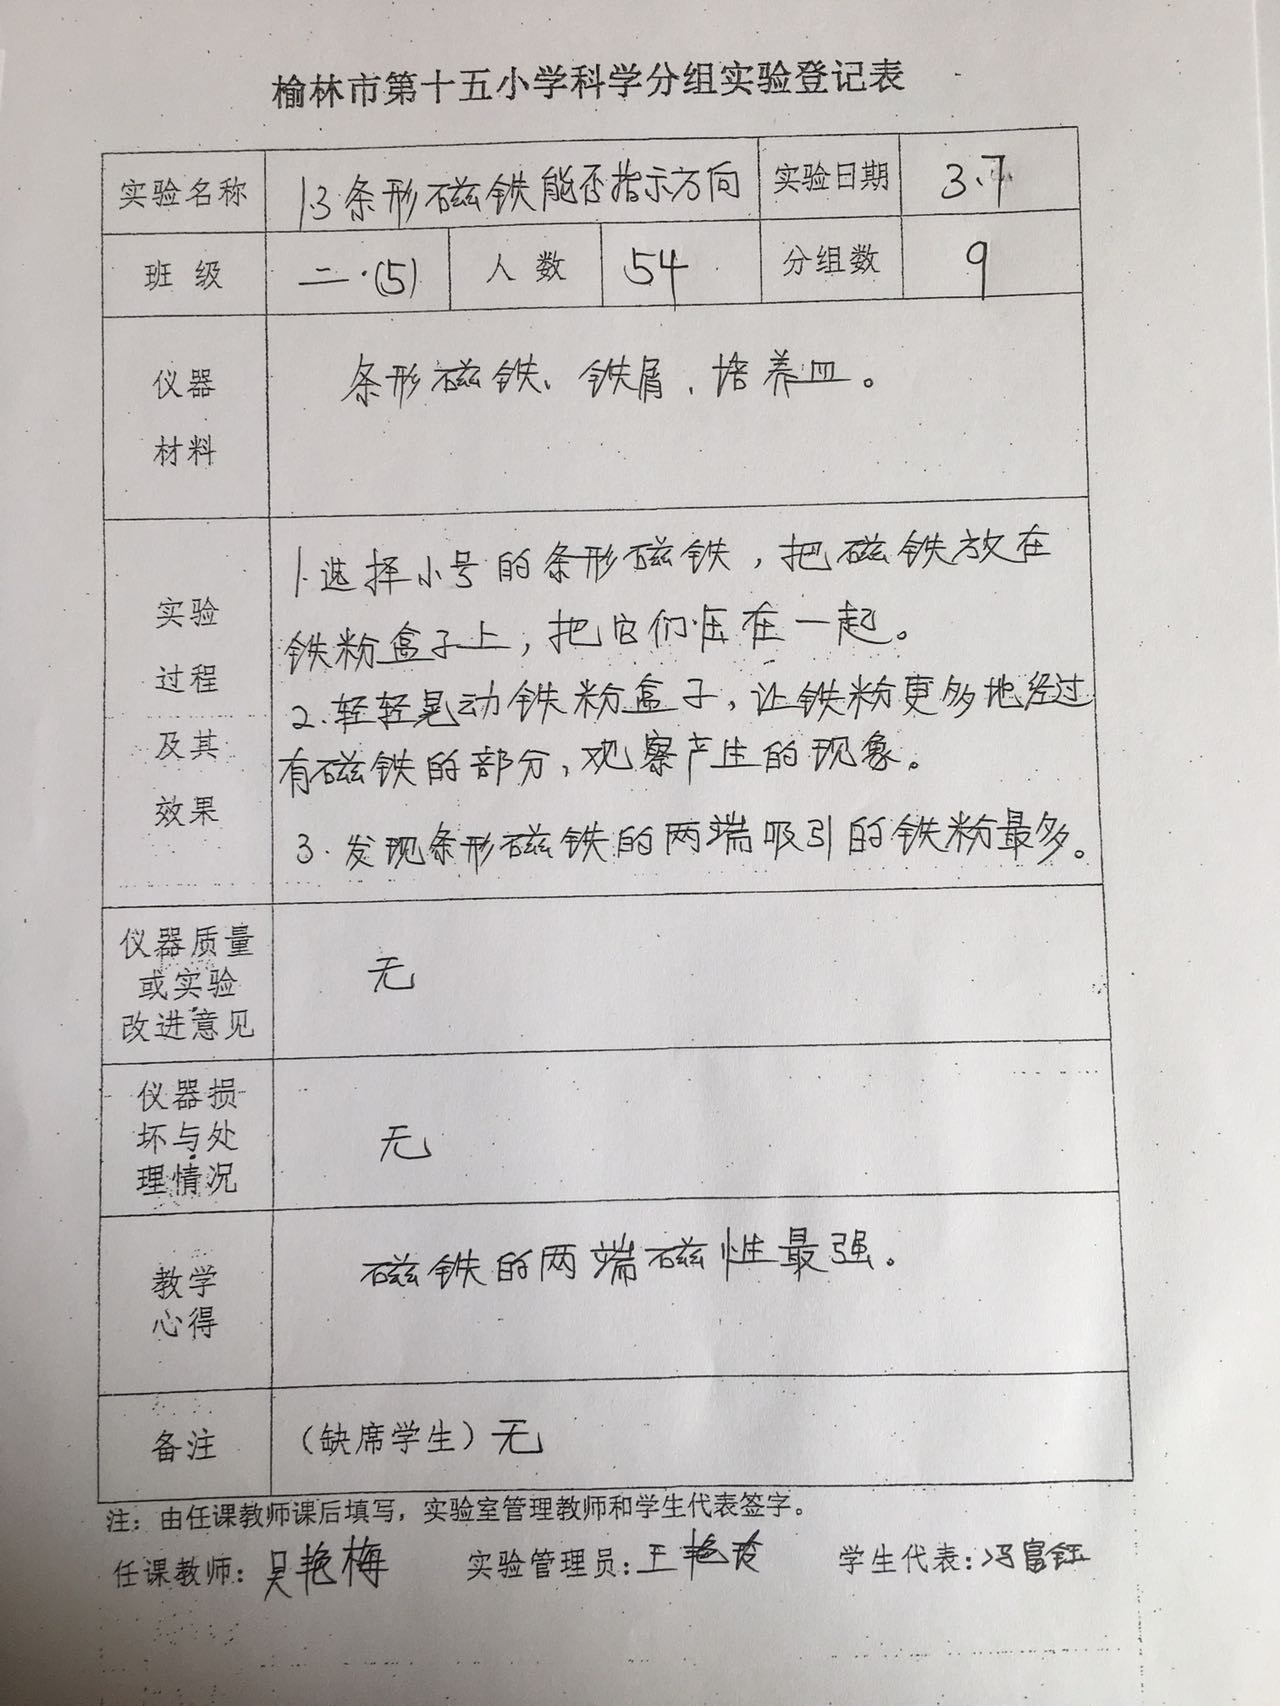 榆林市第十五小学科学分组实验登记表
实验名称 1.3条形磁铁能否指示方向 实验日期 3.7
班级 二·(5) 人数 54 分组数 9
仪器 条形磁铁、铁屑、培养皿。
材料
1.选择小号的条形磁铁，把磁铁放在
实验 铁粉盒子上，把它们压在一起。
过程 2.轻轻晃动铁粉盒子，让铁粉更多地经过
及其 有磁铁的部分，观察产生的现象。
效果 3.发现条形磁铁的两端吸引的铁粉最多。
仪器质量
或实验 无
改进意见
仪器损
坏与处 无
理情况
教学 磁铁的两端磁性最强。
心得
备注 （缺席学生）无
注：由任课教师课后填写，实验室管理教师和学生代表签字。
任课教师：吴艳梅 实验管理员：王艳玲 学生代表：冯富钰